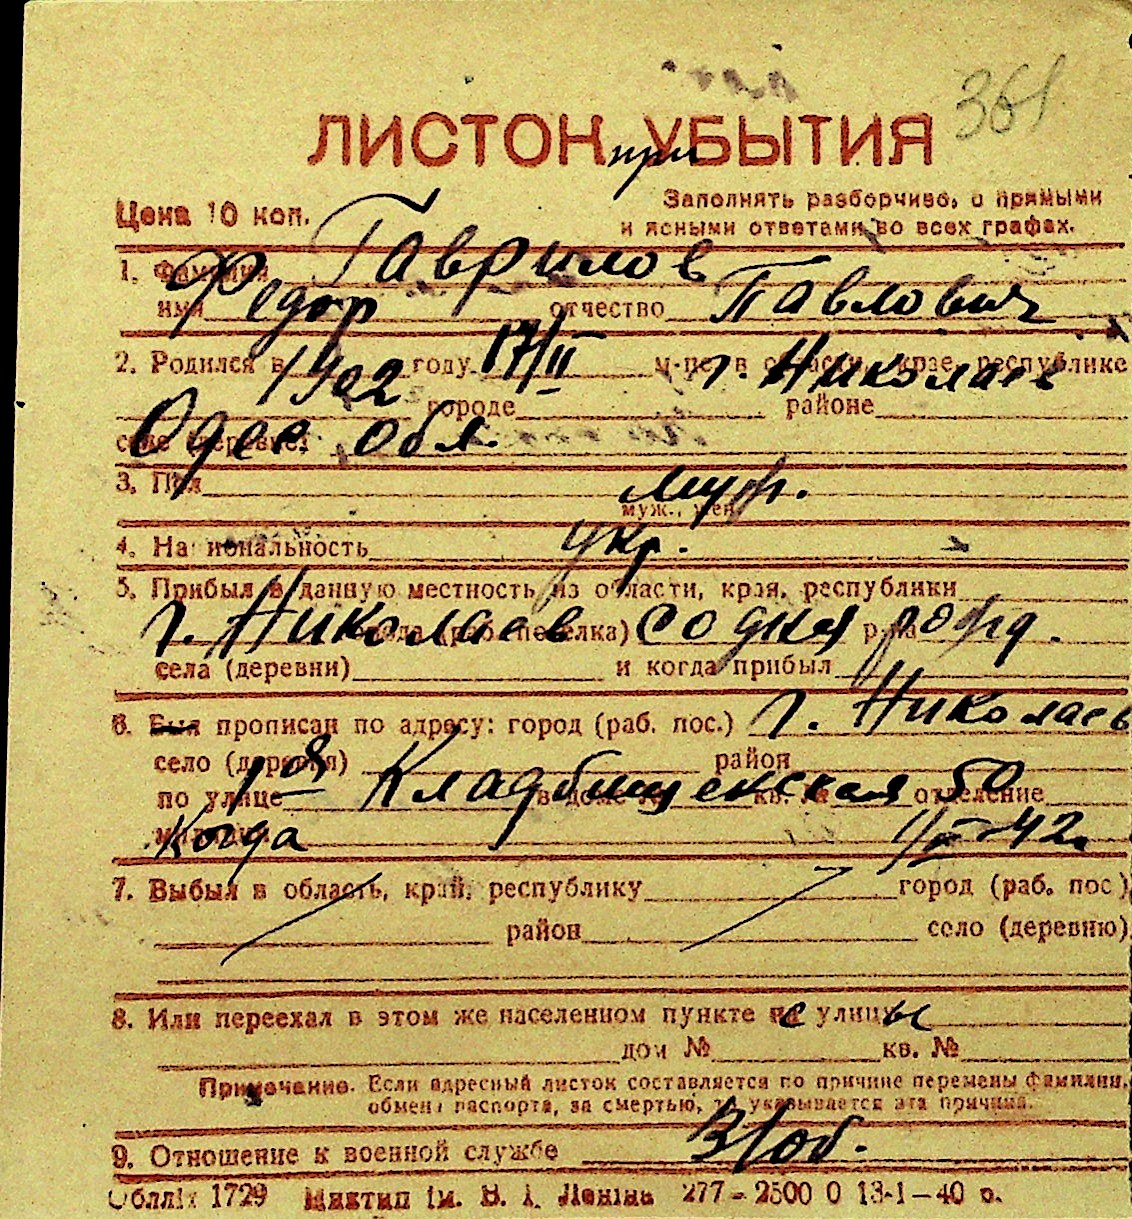 361
ЛИСТОК УБЫТИЯ
при
Цена 10 коп.
Заполнять разборчиво, с прямыми
и ясными ответами во всех графах.
1. Фамилия Гаврилов
имя Федор отчество Павлович
2. Родился в 1902 году 17/II м-це, в области, крае, республике г. Николаев
городе районе
селе (деревне) Одес обл.
3. Пол муж.
муж., жен.
4. Национальность укр.
5. Прибыл в данную местность из области, края, республики
г. Николаев города (раб. поселка) со дня р-на рожд.
села (деревни) и когда прибыл
6. Был прописан по адресу: город (раб. пос.) г. Николаев
село (деревня) район
по улице 1ая Кладбищенская 50 в доме № кв. № отделение
милиции Когда 42
7. Выбыл в область, край, республику город (раб. пос.)
район село (деревню)
8. Или переехал в этом же населенном пункте с улицы
дом № кв. №
Примечание. Если адресный листок составляется по причине перемены фамилии,
обмена паспорта, за смертью, то указывается эта причина.
9. Отношение к военной службе В/об.
Обллiт 1729 Миктип iм. В. I. Ленiна 277 - 2500 0 13-1-40 р.